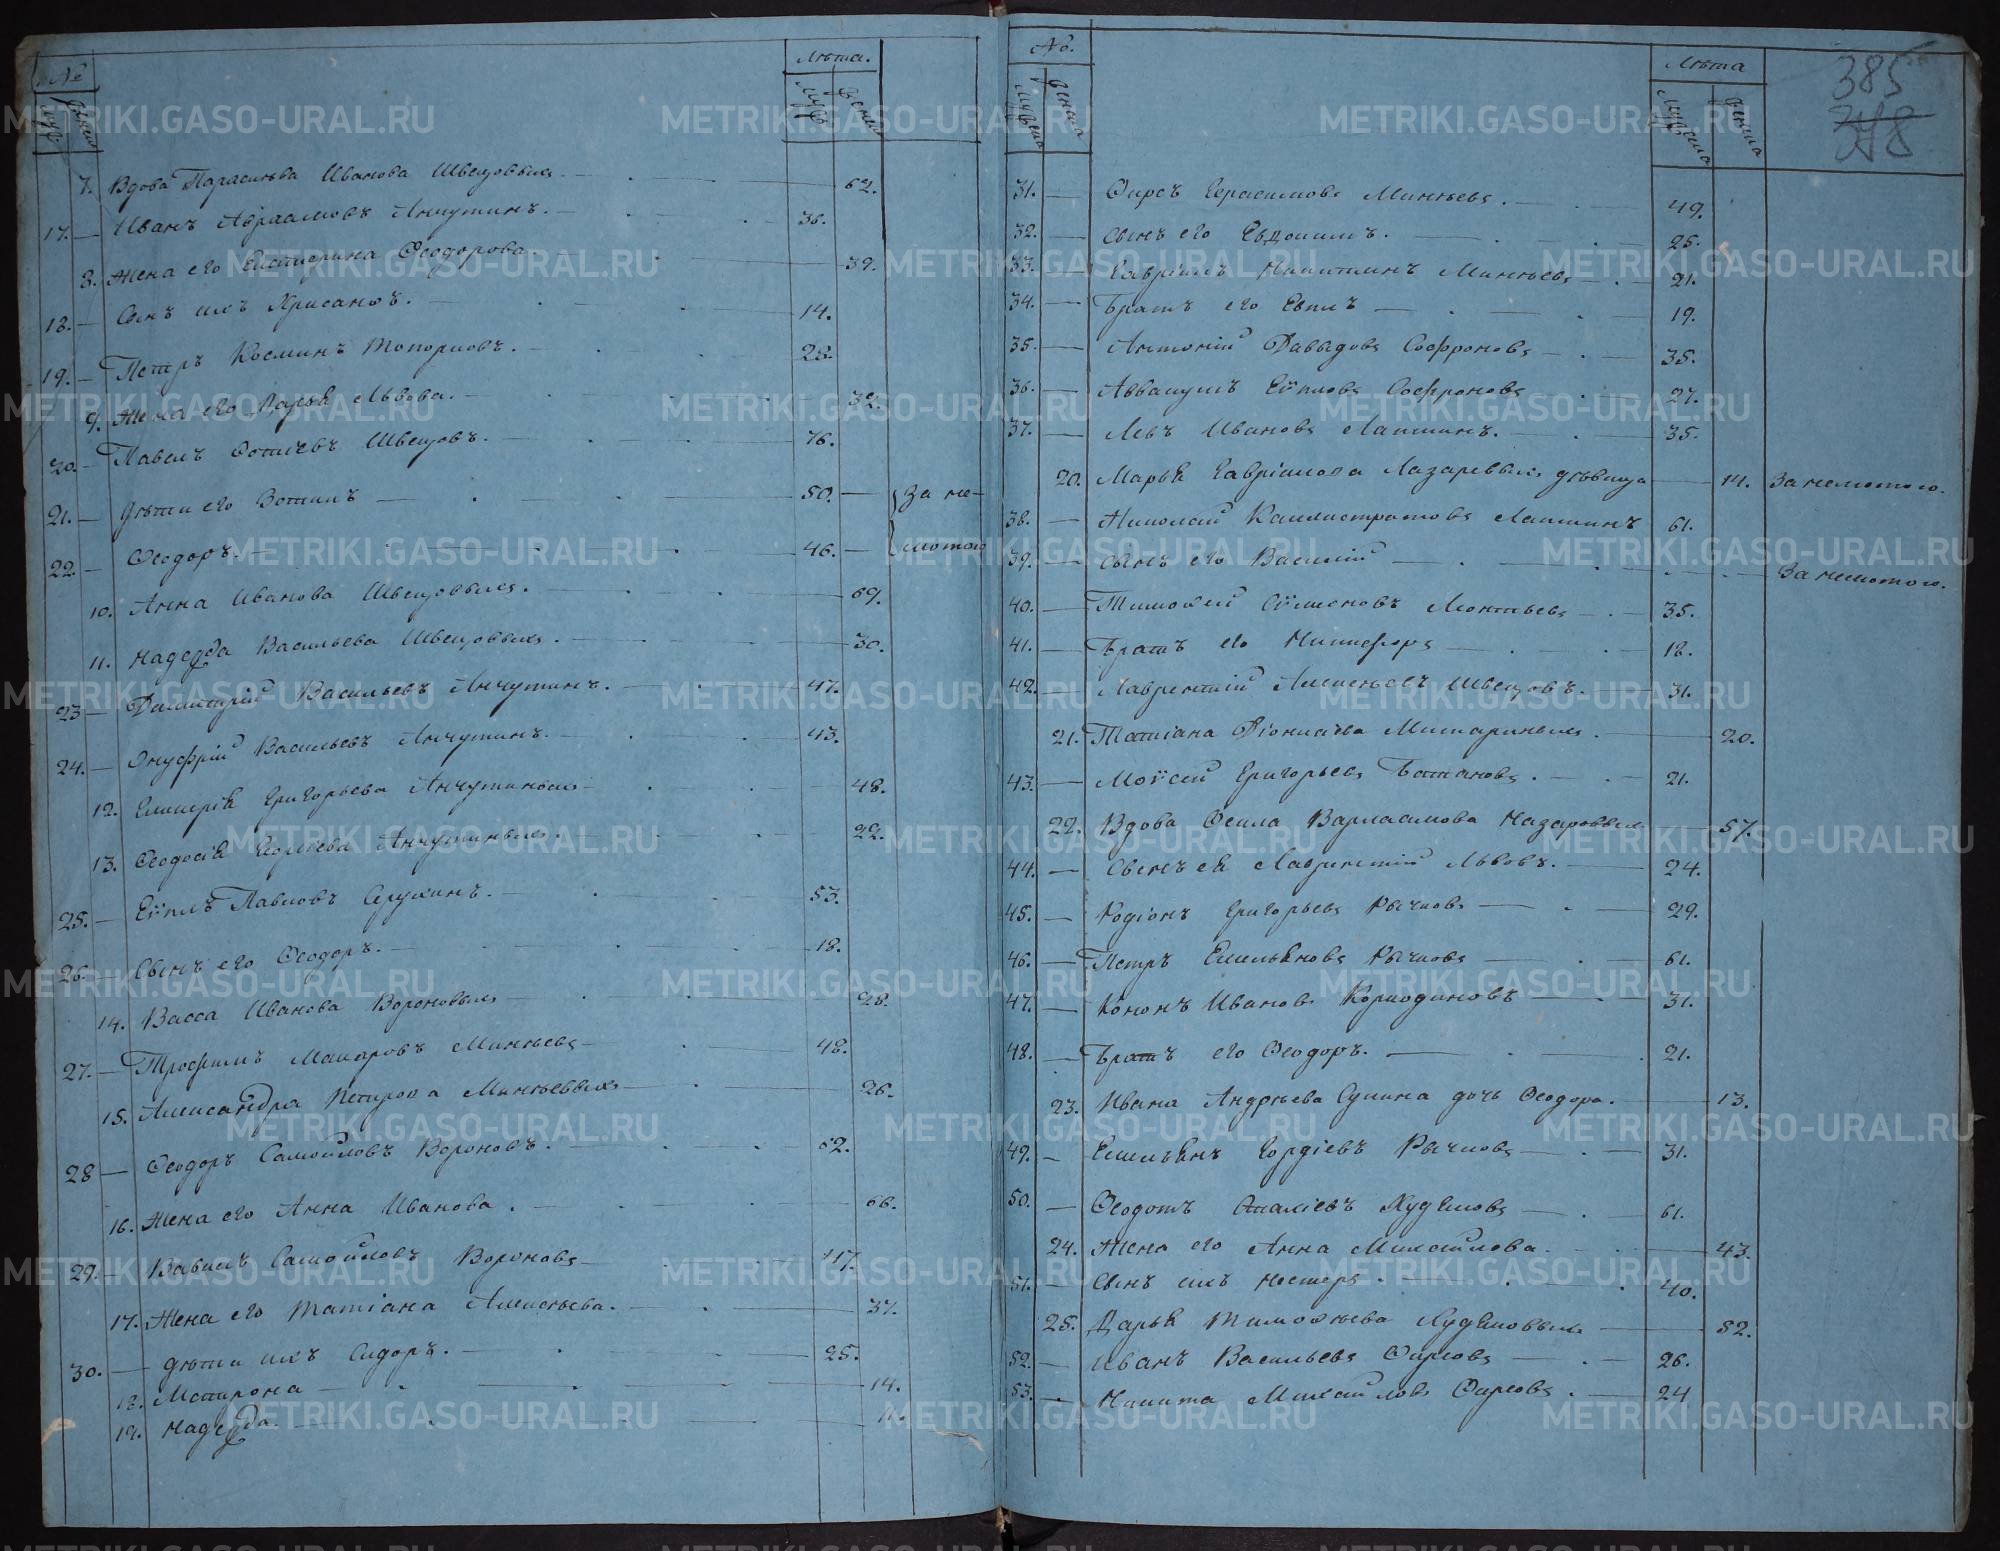 № Лѣта.
Муж. Женск. Муж. Женск.
7. Вдова Парасковья Иванова Швецовыхъ 62.
17. Иванъ Авраамовъ Анчутинъ. 36.
8. Жена его Екатерина Ѳеодорова 39.
18. Сынъ ихъ Хрисанѳъ. 14.
19. Петръ Косминъ Топорковъ. 28.
9. Жена его Марья Львова. 32.
20. Павелъ Фотіевъ Швецовъ. 76.
21. Дѣти его Вотилъ 50. За не-
22. Ѳеодоръ. 46. мотою
10. Анна Иванова Швецовыхъ. 69.
11. Надежда Васильева Швецовыхъ. 30.
23 Димитрій Васильевъ Анчутинъ. 47.
24. Онуфрій Васильевъ Анчутинъ. 43.
12. Гликерія Григорьева Анчутиныхъ 48.
13. Ѳеодосія Анчутиныхъ. 22.
25. Еѵплъ Павловъ 53.
26. Сынъ его Ѳеодоръ. 18.
14. Васса Иванова Вороновыхъ 28.
27. Трофимъ Макаровъ Минѣевъ 48.
15. Александра Петрова Минѣевыхъ 26.
28 Ѳеодоръ Самойловъ Вороновъ. 62.
16. Жена его Анна Иванова. 66.
29. Вавилъ Самойловъ Вороновъ 47.
17. Жена его Татіана Алексѣева. 37.
30. Дѣти ихъ Сидоръ. 25.
18. Матрона 14.
19. Надежда. 11.
№. Лѣта 385
Мужеска Женска Мужеска Женска
31. Фирсъ Герасимовъ Минѣевъ. 49.
32. Сынъ его Евдокимъ. 25.
33. Гавріилъ Никитинъ Минѣевъ 21.
34. Братъ его Евплъ 19.
35. Антоній Давыдовъ Софроновъ 35.
36. Аввакумъ Еѵпловъ Софроновъ 27.
37. Левъ Ивановъ Лапшинъ. 35.
20. Марья Гавріилова Лазаревыхъ дѣвица 14. За немотою.
38. Николай Каллистратовъ Лапшинъ 61.
39. Сынъ его Василій За немотою.
40. Тимоѳей Сѵмеоновъ Леонтьевъ 35.
41. Братъ его Никифоръ 18.
42. Лаврентій Алексѣевъ Швецовъ. 31.
21. Татіана Діонисіева Митариныхъ. 20.
43. Моѵсей Григорьевъ Батановъ. 21.
22. Вдова Ѳекла Варлаамова Назаровыхъ 57.
44. Сынъ ея Лаврентій Львовъ. 24.
45. Родіонъ Григорьевъ Рычковъ 29.
46. Петръ Емельяновъ Рычковъ 61.
47. Кононъ Ивановъ Кориодиновъ 31.
48. Братъ его Ѳеодоръ. 21.
23. Ивана Андрѣева Сунина дочь Ѳеодора. 13.
49. Емельянъ Гордіевъ Рычковъ 31.
50. Ѳеодотъ Худяковъ 61.
24. Жена его Анна Михайлова. 43.
51. Сынъ ихъ Несторъ. 40.
25. Дарья Тимоѳѣева Худяковыхъ 52.
52. Иванъ Васильевъ Фирсовъ 26.
53. Никита Михайловъ Фирсовъ. 24
METRIKI.GASO-URAL.RU